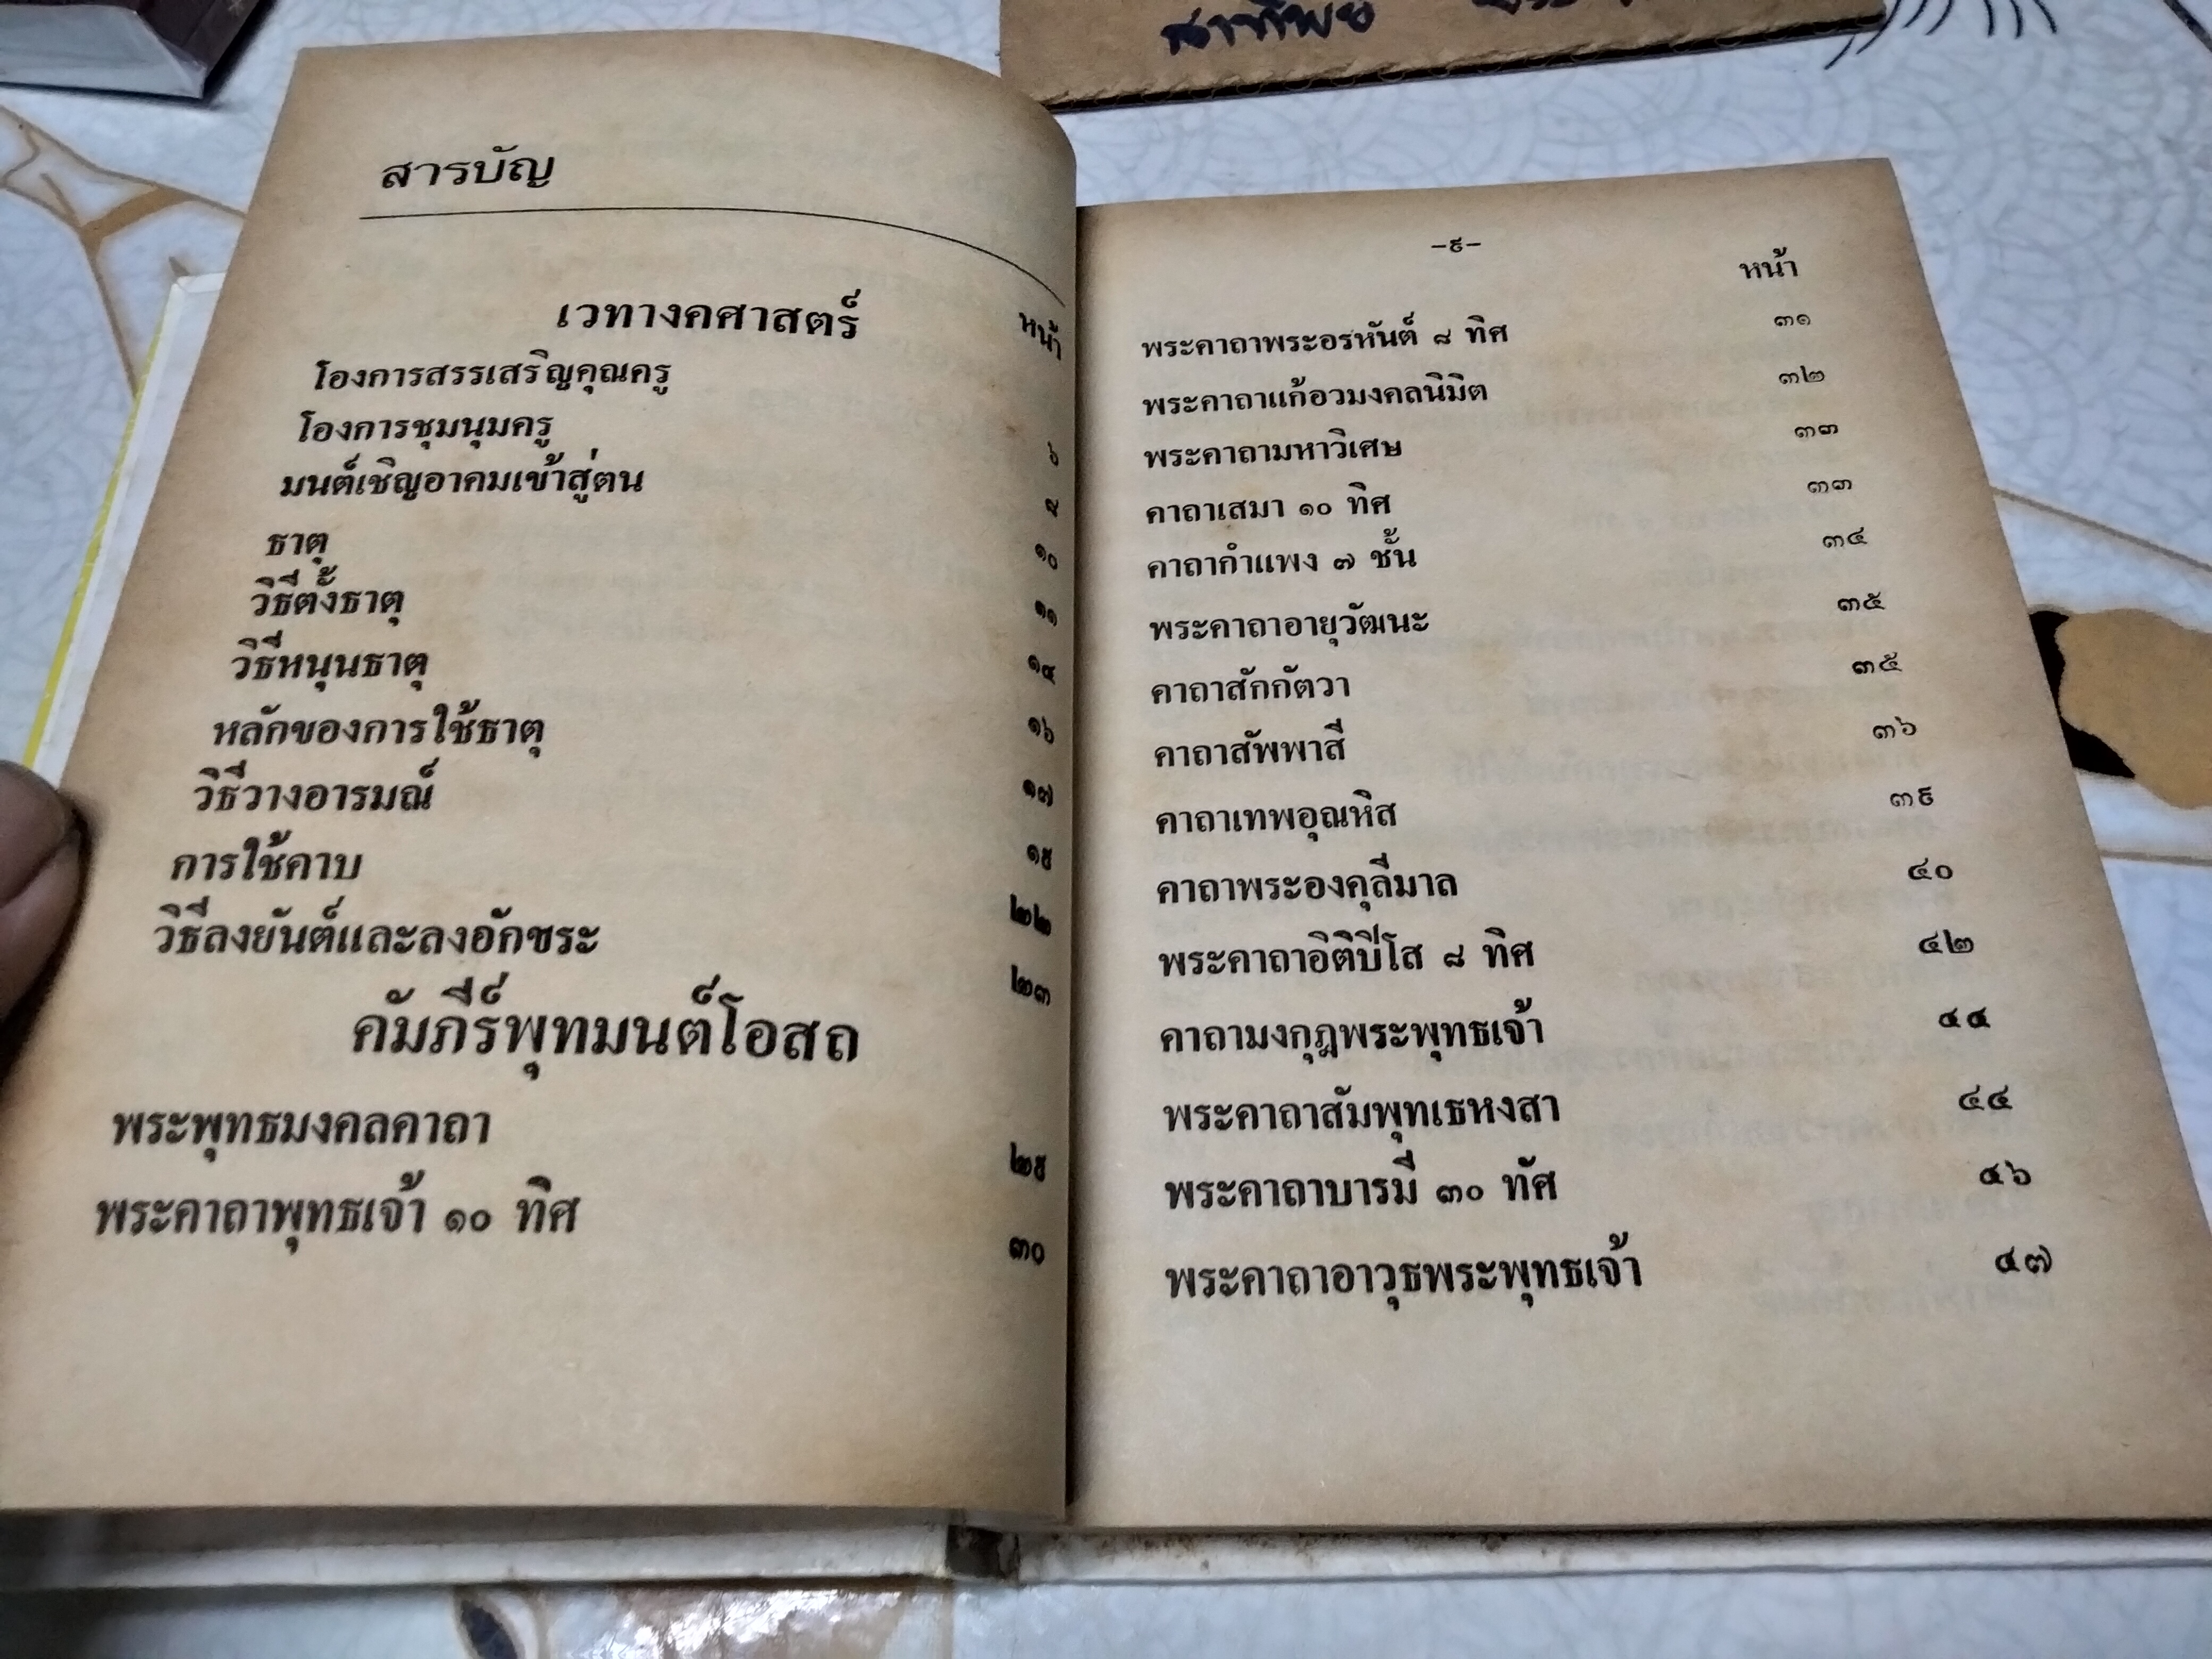 สารบัญ
เวทางคศาสตร์ หน้า
โองการสรรเสริญคุณครู ๖
โองการชุมนุมครู
มนต์เชิญอาคมเข้าสู่ตน ๑๐
ธาตุ ๑๑
วิธีตั้งธาตุ ๑๔
วิธีหนุนธาตุ ๑๖
หลักของการใช้ธาตุ ๑๗
วิธีวางอารมณ์ ๑๙
การใช้คาบ ๒๒
วิธีลงยันต์และลงอักขระ ๒๓
คัมภีร์พุทมนต์โอสถ
พระพุทธมงคลคาถา ๒๙
พระคาถาพุทธเจ้า ๑๐ ทิศ ๓๐
-๙-
หน้า
พระคาถาพระอรหันต์ ๘ ทิศ ๓๑
พระคาถาแก้อวมงคลนิมิต ๓๒
พระคาถามหาวิเศษ ๓๓
คาถาเสมา ๑๐ ทิศ ๓๓
คาถากำแพง ๗ ชั้น ๓๔
พระคาถาอายุวัฒนะ ๓๕
คาถาสักกัตวา ๓๕
คาถาสัพพาสี ๓๖
คาถาเทพอุณหิส ๓๙
คาถาพระองคุลีมาล ๔๐
พระคาถาอิติปิโส ๘ ทิศ ๔๒
คาถามงกุฎพระพุทธเจ้า ๔๔
พระคาถาสัมพุทเธหงสา ๔๔
พระคาถาบารมี ๓๐ ทัศ ๔๖
พระคาถาอาวุธพระพุทธเจ้า ๔๗